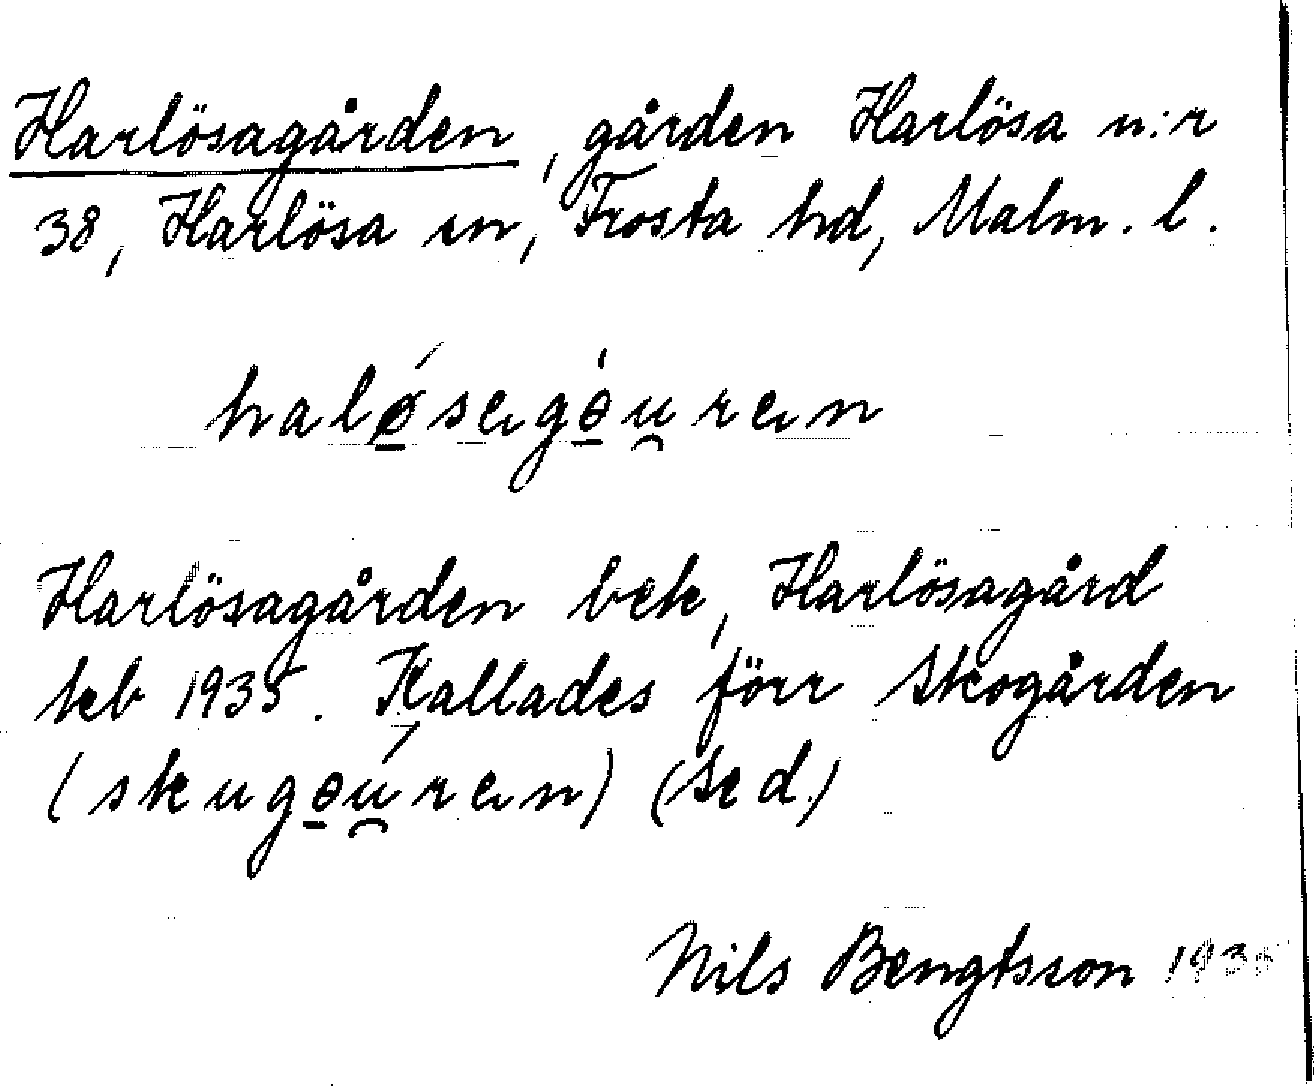 Harlösagården, gården Harlösa n:r
38, Harlösa sn, Frosta hd, Malm. l.
haló̱sagɵ̱́u̯ran
Harlösagården bek, Harlösagård
keb 1935. Kallades förr Skogården
(skugɵ̱ú̯ran) (Sed.)
Nils Bengtsson 1935